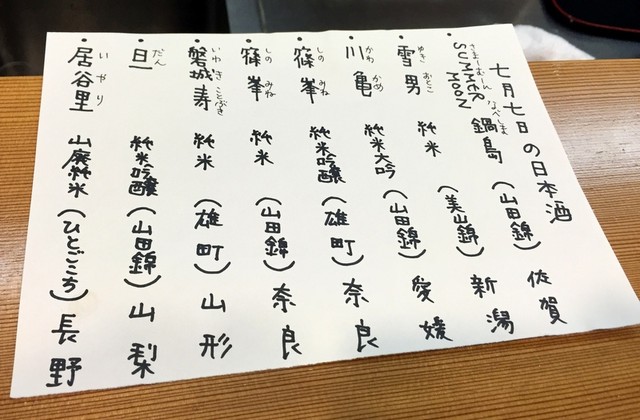 七月七日の日本酒
さまーむーん なべしま
・SUMMER MOON 鍋島 (山田錦) 佐賀
ゆき おとこ
・雪男 純米 (美山錦) 新潟
かわ かめ
・川亀 純米大吟 (山田錦) 愛媛
しの みね
・篠峯 純米吟醸 (雄町) 奈良
しの みね
・篠峯 純米 (山田錦) 奈良
いわき ことぶき
・磐城寿 純米 (雄町) 山形
だん
・旦 純米吟醸 (山田錦) 山梨
いやり
・居谷里 山廃純米 (ひとごこち) 長野